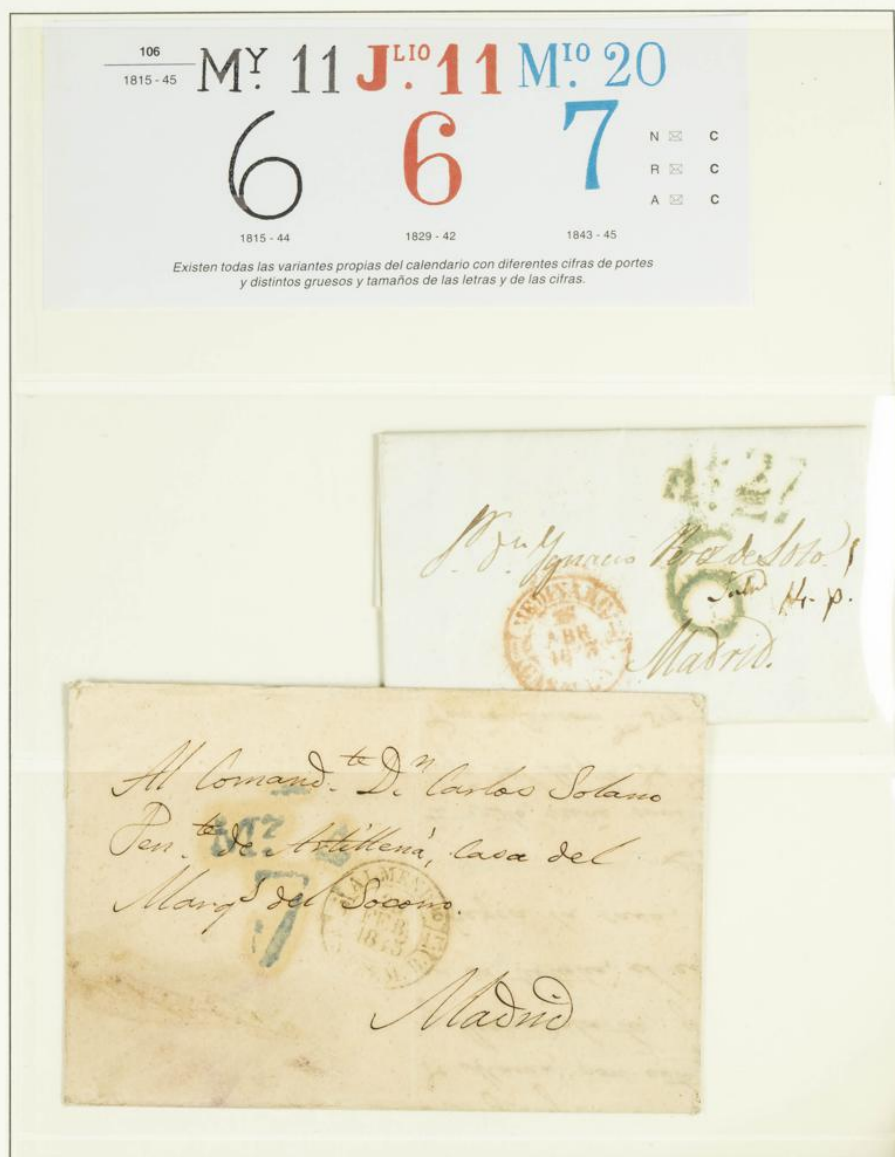 106
1815 - 45
Mʸ. 11 Jᴸᴵᴼ. 11 Mᴵᴼ. 20
6 6 7
N ✉ C
R ✉ C
A ✉ C
1815 - 44 1829 - 42 1843 - 45
Existen todas las variantes propias del calendario con diferentes cifras de portes
y distintos gruesos y tamaños de las letras y de las cifras.
27
Ygnacio de Soto
6
ABR
Madrid.
Al Comand.ᵗᵉ D.ⁿ Carlos Solano
de Artillería, casa del
Mz
7
Marqˢ del Socorro.
FEB
1843
Madrid